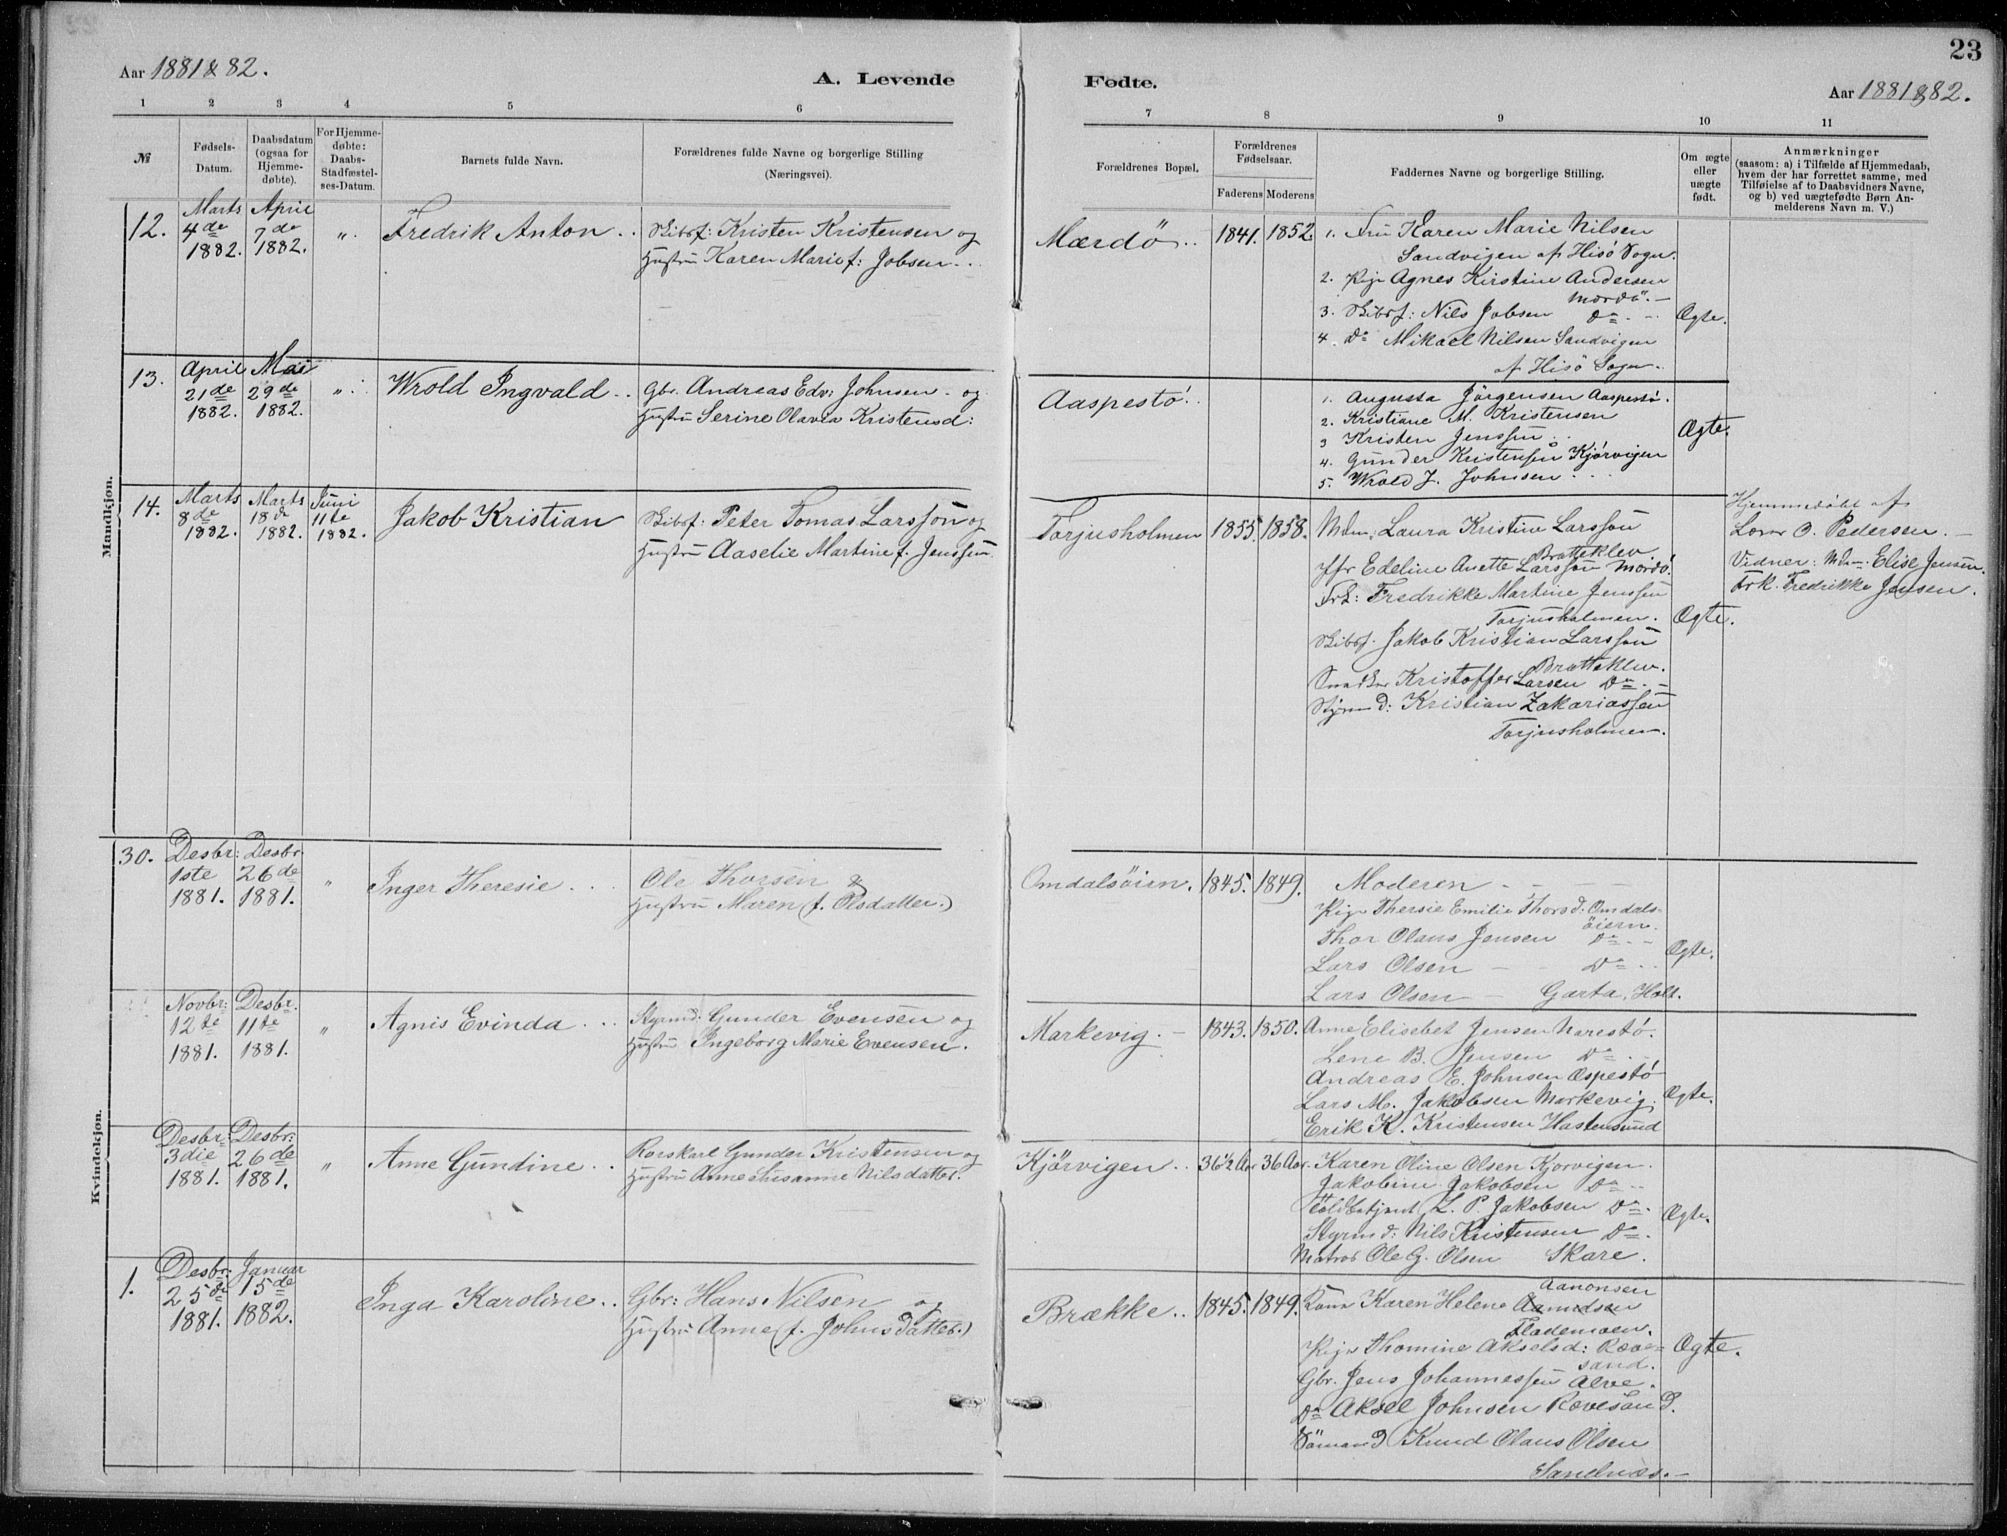 23
Aar 1881 & 82.
A. Levende
Fødte.
Aar 1881 & 82.
1 2 3 4 5 6 7 8 9 10 11
№
Fødsels-
Datum.
Daabsdatum
(ogsaa for
Hjemme-
døbte).
For Hjemme-
døbte:
Daabs-
Stadfæstel-
ses-Datum.
Barnets fulde Navn.
Forældrenes fulde Navne og borgerlige Stilling
(Næringsvei).
Forældrenes Bopæl.
Forældrenes
Fødselsaar.
Faderens Moderens
Faddernes Navne og borgerlige Stilling.
Om ægte
eller
uægte
født.
Anmærkninger
(saasom: a) i Tilfælde af Hjemmedaab,
hvem der har forrettet samme, med
Tilføielse af to Daabsvidners Navne,
og b) ved uægtefødte Børn An-
melderens Navn m. V.)
Mandkjøn.
12.
Marts
4de
1882.
April
7de
1882.
"
Fredrik Anton
Skibsf: Kristen Kristensen og
Hustru Karen Marie f: Jobsen
Mærdö
1841. 1852.
1. Fru Karen Marie Nilsen
Sandvigen af Hisö Sogn.
2. Pige Agnes Kirstine Andersen
Mærdö.
3. Skibsf: Nils Jobsen Do
4. Do Mikael Nilsen Sandvigen
af Hisö Sogn.
Ægte.
13.
April
21de
1882.
Mai
29de
1882.
"
Wrold Ingvald
Gbr. Andreas Edv: Johnsen og
Hustru Serine Olavea Kristensd:
Aaspestö.
1. Augusta Jörgensen Aaspestö.
2. Kristiane M. Kristensen
3 Kristen Jenssen
4. Gunder Kristensen Kjörvigen
5. Wrold J. Johnsen
Ægte.
14.
Marts
8de
1882.
Marts
18de
1882.
Juni
11te
1882.
Jakob Kristian
Skibsf: Peter Tomas Larsson og
Hustru Aaselie Martine f. Jenssen
Torjusholmen
1855. 1858.
Mdm. Laura Kristine Larsson
Bratteklev
Jfr Edeline Anette Larsson Mærdö
Frk: Fredrikke Martine Jenssen
Torjusholmen.
Skibsf. Jakob Kristian Larsson
Bratteklev.
Kristoffer Larsen Do
Styrmd: Kristian Zakariassen
Torjusholmen.
Ægte.
Hjemmedöbt af
Lærer O. Pedersen.
Vidner: Mdm. Elise Jensen.
Frk. Fredrikke Jensen.
Kvindekjøn.
30.
Desbr:
1ste
1881.
Desbr.
26de
1881.
"
Inger Theresie
Ole Thorsen &
Hustru Maren (f. Olsdatter.)
Omdalsöiern.
1845. 1849.
Moderen
Pige Thersie Emilie Thorsd. Omdals-
öiern.
Thor Olaus Jensen Do
Lars Olsen Do
Lars Olsen Garta, Holt.
Ægte.
Novbr:
12te
1881.
Desbr.
11te
1881.
"
Agnis Evinda
Styrmd: Gunder Evensen og
Hustru Ingeborg Marie Evensen.
Markevig.
1843. 1850.
Anne Elisebet Jensen Narestö.
Lene B. Jensen Do
Andreas E. Johnsen Æspestö
Lars M. Jakobsen Markevig.
Erik K. Kristensen Hastensund
Ægte.
Desbr:
3die
1881.
Desbr:
26de
1881.
"
Anne Gundine
Rorskarl Gunder Kristensen og
Hustru Anne Susanne Nilsdatter.
Kjörvigen
36½ Aar 36 Aar.
Karen Oline Olsen Kjorvigen.
Jakobine Jakobsen Do
Toldbetjent L. P. Jakobsen Do
Styrmd: Nils Kristensen Do
Matros Ole G. Olsen Skare.
Ægte.
1.
Desbr:
25de
1881.
Januar
15de
1882.
Inga Karoline
Gbr: Hans Nilsen og
Hustru Anne (f. Johnsdatter.)
Brække
1845. 1849.
Aanonsen
Kone Karen Helene Aamodsen
Flademoen.
Pige Thomine Akselsd: Ræve-
sand.
Gbr. Jens Johannessen Alve.
Do Aksel Johnsen Rævesand.
Sömand Knud Olaus Olsen
Sandnæs.
Ægte.